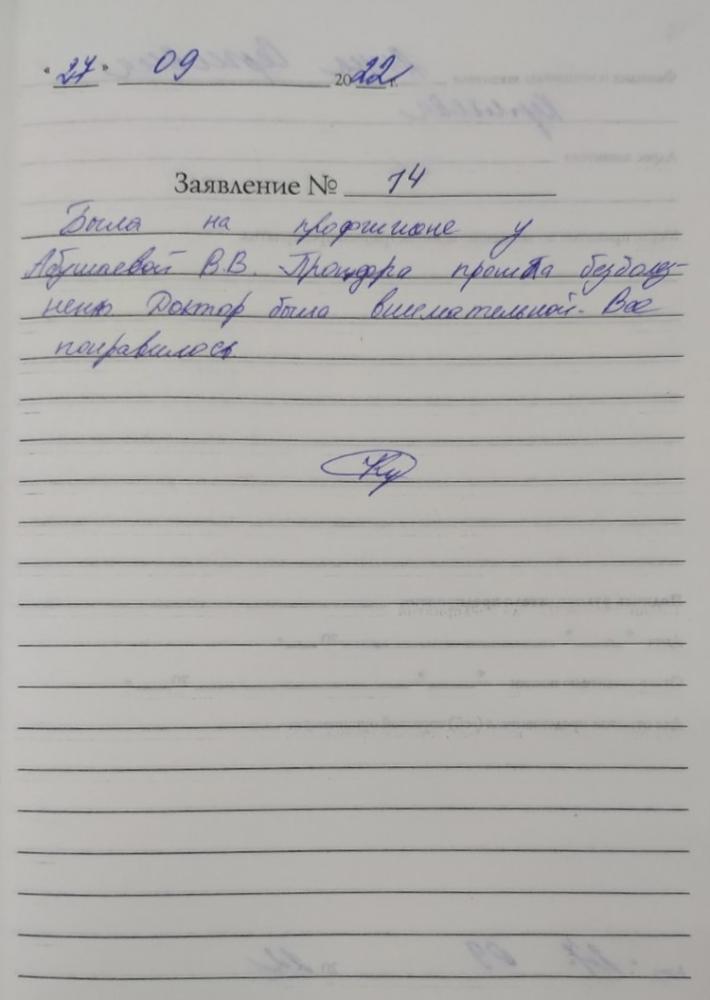 « 27 » 09 2022 г.
Заявление № 14
Была на профгигиене у
Абушаевой В.В. Процедура прошла безболез-
ненно. Доктор была внимательной. Все
понравилось